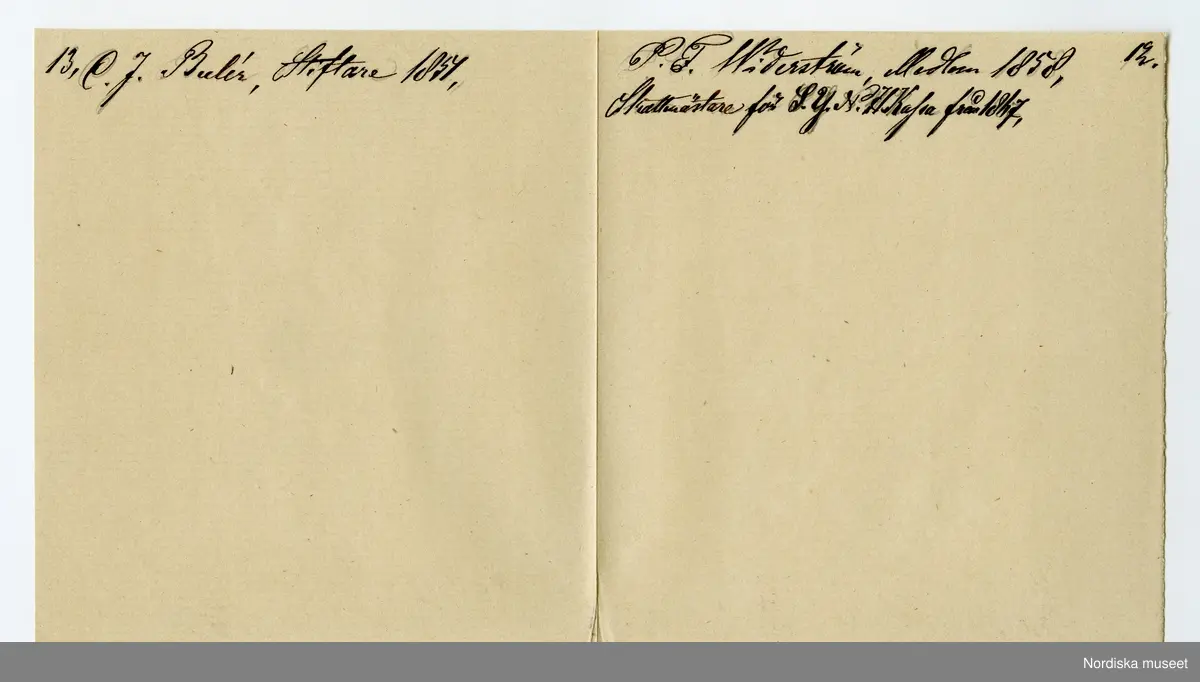 13, C. J. Bulér, Stiftare 1851,
P. F. Widerström, Medlem 1858, 12.
Skattmästare för S. Y. N. W. Kassa från 1867,
Nordiska museet